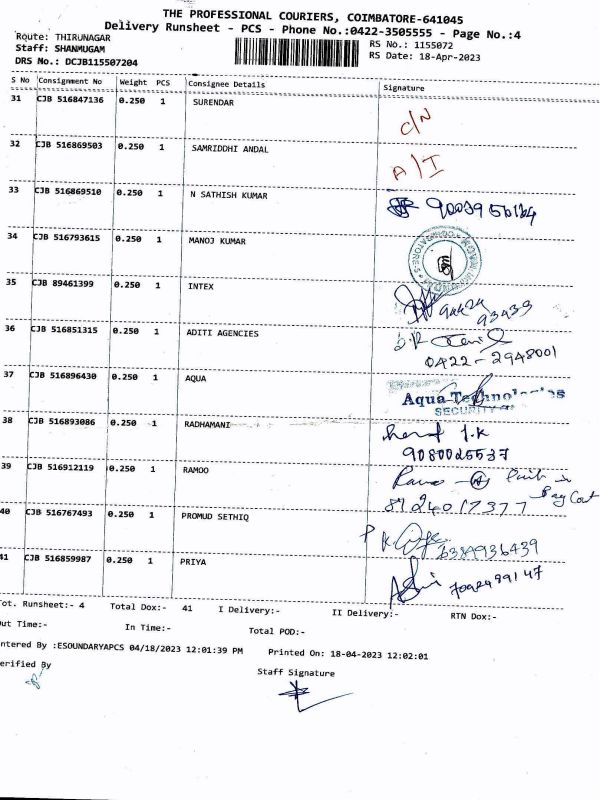 THE PROFESSIONAL COURIERS, COIMBATORE-641045
Delivery Runsheet - PCS - Phone No.:0422-3505555 - Page No.:4
Route: THIRUNAGAR RS No.: 1155072
Staff: SHANMUGAM RS Date: 18-Apr-2023
DRS No.: DCJB115507204
S No Consignment No Weight PCS Consignee Details Signature
31 CJB 516847136 0.250 1 SURENDAR D/N
32 CJB 516869503 0.250 1 SAMRIDDHI ANDAL A/I
33 CJB 516869510 0.250 1 N SATHISH KUMAR
34 CJB 516793615 0.250 1 MANOJ KUMAR
35 CJB 89461399 0.250 1 INTEX
93433
36 CJB 516851315 0.250 1 ADITI AGENCIES
0422-2948001
37 CJB 516896430 0.250 1 AQUA
Aqua Technologies
SECURITY
38 CJB 516893086 0.250 1 RADHAMANI
9080026537
39 CJB 516912119 0.250 1 RAMOO
40 CJB 516767493 0.250 1 PROMUD SETHIQ
P K 6384936439
41 CJB 516859987 0.250 1 PRIYA
Tot. Runsheet:- 4 Total Dox:- 41 I Delivery:- II Delivery:- RTN Dox:-
Out Time:- In Time:- Total POD:-
ntered By :ESOUNDARYAPCS 04/18/2023 12:01:39 PM Printed On: 18-04-2023 12:02:01
erified By Staff Signature